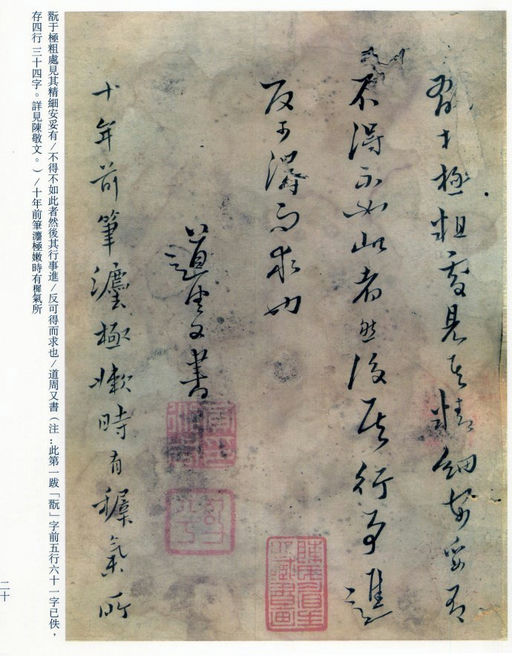 翫于極粗處見其精細安妥有
不得不如此者然後其行事進
反可得而求也
道周又書
十年前筆灋極嫩時有穉氣所
翫于極粗處見其精細安妥有/不得不如此者然後其行事進/反可得而求也/道周又書(注:此第一跋「翫」字前五行六十一字已佚,
存四行三十四字。詳見陳敬文。)/十年前筆灋極嫩時有穉氣所
二十